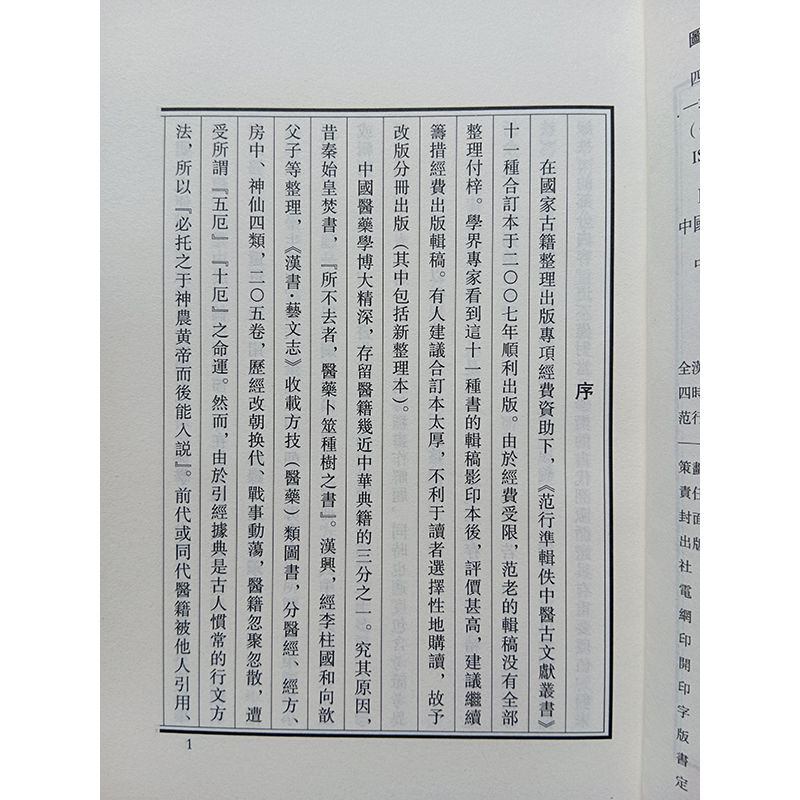 序
在國家古籍整理出版專項經費資助下，《范行準輯佚中醫古文獻叢書》
十一種合訂本于二〇〇七年順利出版。由於經費受限，范老的輯稿没有全部
整理付梓。學界專家看到這十一種書的輯稿影印本後，評價甚高，建議繼續
籌措經費出版輯稿。有人建議合訂本太厚，不利于讀者選擇性地購讀，故予
改版分冊出版（其中包括新整理本）。
中國醫藥學博大精深，存留醫籍幾近中華典籍的三分之一。究其原因，
昔秦始皇焚書，『所不去者，醫藥卜筮種樹之書』。漢興，經李柱國和向歆
父子等整理，《漢書·藝文志》收載方技（醫藥）類圖書，分醫經、經方、
房中、神仙四類，二〇五卷，歷經改朝换代、戰事動蕩，醫籍忽聚忽散，遭
受所謂『五厄』『十厄』之命運。然而，由於引經據典是古人慣常的行文方
法，所以『必托之于神農黄帝而後能入説』。前代或同代醫籍被他人引用、
1
圖
四
IS
中
國
漢時
全四范行
策劃
責任
封面
出版
社
電
網
印
開
印
字
版
書
定